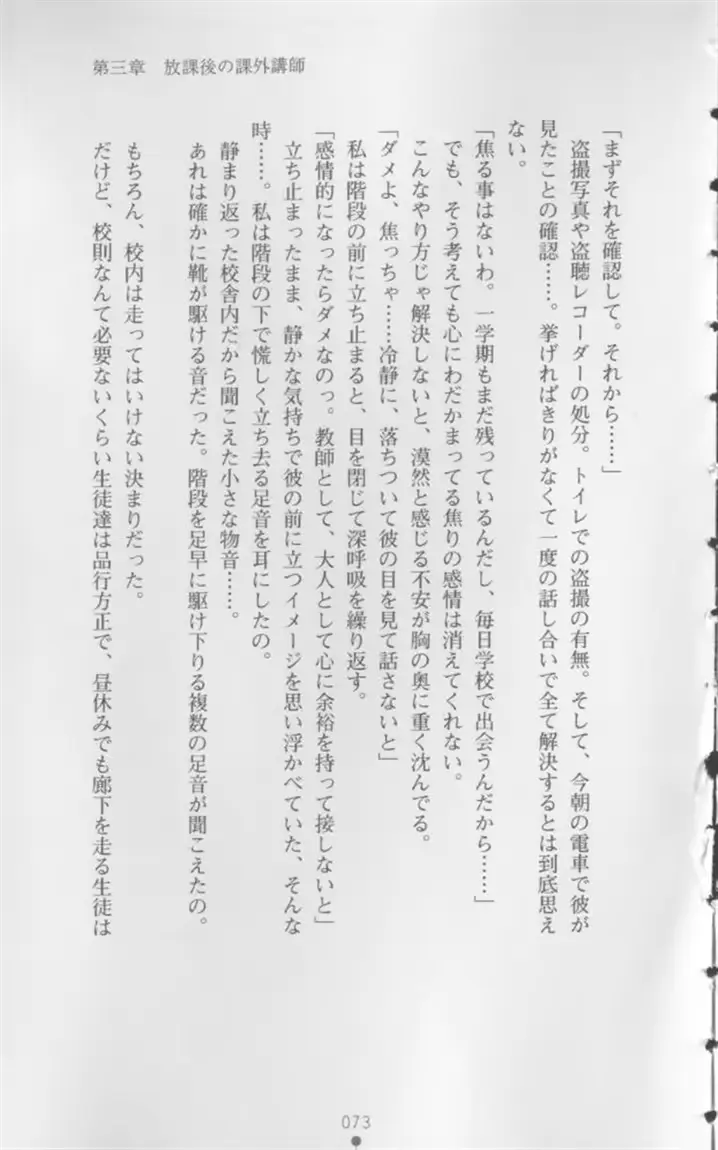 第三章　放課後の課外講師
「まずそれを確認して。それから……」
　盗撮写真や盗聴レコーダーの処分。トイレでの盗撮の有無。そして、今朝の電車で彼が
見たことの確認……。挙げればきりがなくて一度の話し合いで全て解決するとは到底思え
ない。
「焦る事はないわ。一学期もまだ残っているんだし、毎日学校で出会うんだから……」
　でも、そう考えても心にわだかまってる焦りの感情は消えてくれない。
　こんなやり方じゃ解決しないと、漠然と感じる不安が胸の奥に重く沈んでる。
「ダメよ、焦っちゃ……冷静に、落ちついて彼の目を見て話さないと」
　私は階段の前に立ち止まると、目を閉じて深呼吸を繰り返す。
「感情的になったらダメなのっ。教師として、大人として心に余裕を持って接しないと」
　立ち止まったまま、静かな気持ちで彼の前に立つイメージを思い浮かべていた、そんな
時……。私は階段の下で慌しく立ち去る足音を耳にしたの。
　静まり返った校舎内だから聞こえた小さな物音……。
　あれは確かに靴が駆ける音だった。階段を足早に駆け下りる複数の足音が聞こえたの。
　もちろん、校内は走ってはいけない決まりだった。
　だけど、校則なんて必要ないくらい生徒達は品行方正で、昼休みでも廊下を走る生徒は
073